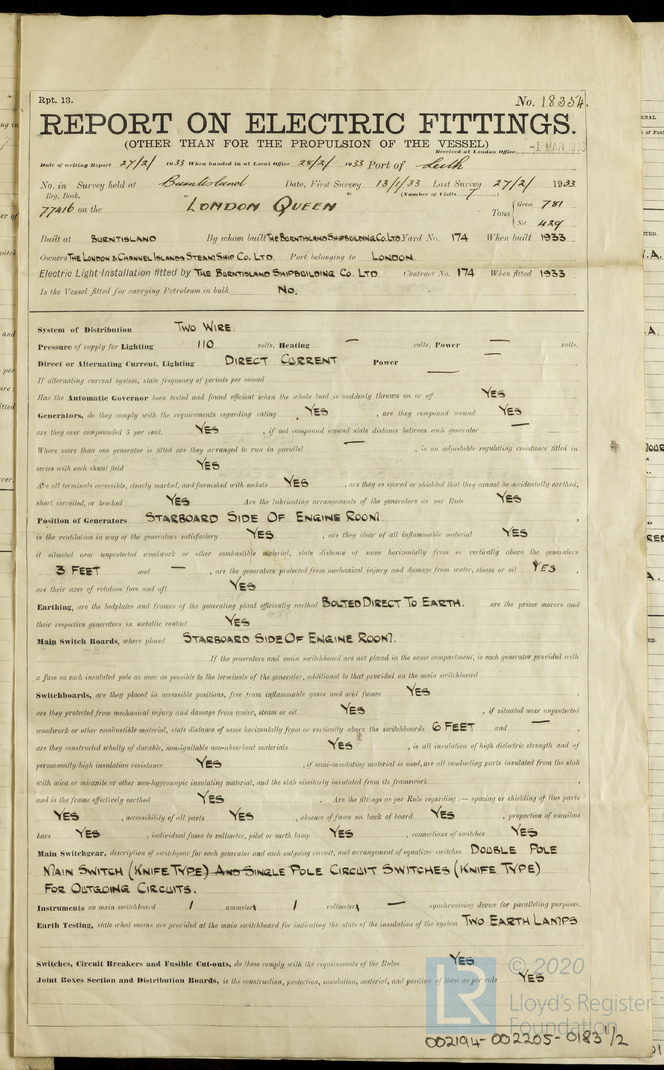 Rpt. 13.
No. 18354.
REPORT ON ELECTRIC FITTINGS.
(OTHER THAN FOR THE PROPULSION OF THE VESSEL)
Received at London Office -1 MAR 1933
Date of writing Report 27/2/ 1933 When handed in at Local Office 28/2/ 1933 Port of Leith
No. in Survey held at Burntisland Date, First Survey 13/1/33 Last Survey 27/2/ 1933
Reg. Book. (Number of Visits 7)
77416 on the "LONDON QUEEN" Tons { Gross 781
Net 429
Built at BURNTISLAND By whom built THE BURNTISLAND SHIPBUILDING CO. LTD. Yard No. 174 When built 1933
Owners THE LONDON & CHANNEL ISLANDS STEAM SHIP CO. LTD. Port belonging to LONDON.
Electric Light Installation fitted by THE BURNTISLAND SHIPBUILDING CO. LTD. Contract No. 174 When fitted 1933
Is the Vessel fitted for carrying Petroleum in bulk NO.
System of Distribution TWO WIRE.
Pressure of supply for Lighting 110 volts, Heating — volts, Power — volts.
Direct or Alternating Current, Lighting DIRECT CURRENT Power —
If alternating current system, state frequency of periods per second
Has the Automatic Governor been tested and found efficient when the whole load is suddenly thrown on or off YES
Generators, do they comply with the requirements regarding rating YES, are they compound wound YES
are they over compounded 5 per cent. YES, if not compound wound state distance between each generator —
Where more than one generator is fitted are they arranged to run in parallel —, is an adjustable regulating resistance fitted in
series with each shunt field YES
Are all terminals accessible, clearly marked, and furnished with sockets YES, are they so spaced or shielded that they cannot be accidentally earthed,
short circuited, or touched YES Are the lubricating arrangements of the generators as per Rule YES
Position of Generators STARBOARD SIDE OF ENGINE ROOM.
is the ventilation in way of the generators satisfactory YES, are they clear of all inflammable material YES
if situated near unprotected woodwork or other combustible material, state distance of same horizontally from or vertically above the generators
3 FEET and —, are the generators protected from mechanical injury and damage from water, steam or oil YES,
are their axes of rotation fore and aft YES
Earthing, are the bedplates and frames of the generating plant efficiently earthed BOLTED DIRECT TO EARTH. are the prime movers and
their respective generators in metallic contact YES
Main Switch Boards, where placed STARBOARD SIDE OF ENGINE ROOM.
If the generators and main switchboard are not placed in the same compartment, is each generator provided with
a fuse on each insulated pole as near as possible to the terminals of the generator, additional to that provided on the main switchboard
Switchboards, are they placed in accessible positions, free from inflammable gases and acid fumes YES,
are they protected from mechanical injury and damage from water, steam or oil YES, if situated near unprotected
woodwork or other combustible material, state distance of same horizontally from or vertically above the switchboards 6 FEET and —,
are they constructed wholly of durable, non-ignitable non-absorbent materials YES, is all insulation of high dielectric strength and of
permanently high insulation resistance YES, if semi-insulating material is used, are all conducting parts insulated from the slab
with mica or micanite or other non-hygroscopic insulating material, and the slab similarly insulated from its framework
and is the frame effectively earthed YES. Are the fittings as per Rule regarding :— spacing or shielding of live parts
YES, accessibility of all parts YES, absence of fuses on back of board YES, proportion of omnibus
bars YES, individual fuses to voltmeter, pilot or earth lamp YES, connections of switches YES
Main Switchgear, description of switchgear for each generator and each outgoing circuit, and arrangement of equalizer switches DOUBLE POLE
MAIN SWITCH (KNIFE TYPE) AND SINGLE POLE CIRCUIT SWITCHES (KNIFE TYPE)
FOR OUTGOING CIRCUITS.
Instruments on main switchboard 1 ammeter 1 voltmeter — synchronising device for paralleling purposes.
Earth Testing, state what means are provided at the main switchboard for indicating the state of the insulation of the system TWO EARTH LAMPS
Switches, Circuit Breakers and Fusible Cut-outs, do these comply with the requirements of the Rules YES
Joint Boxes Section and Distribution Boards, is the construction, protection, insulation, material, and position of these as per rule YES
LR © 2020
Lloyd's Register
Foundation
002194-002205-0183 1/2